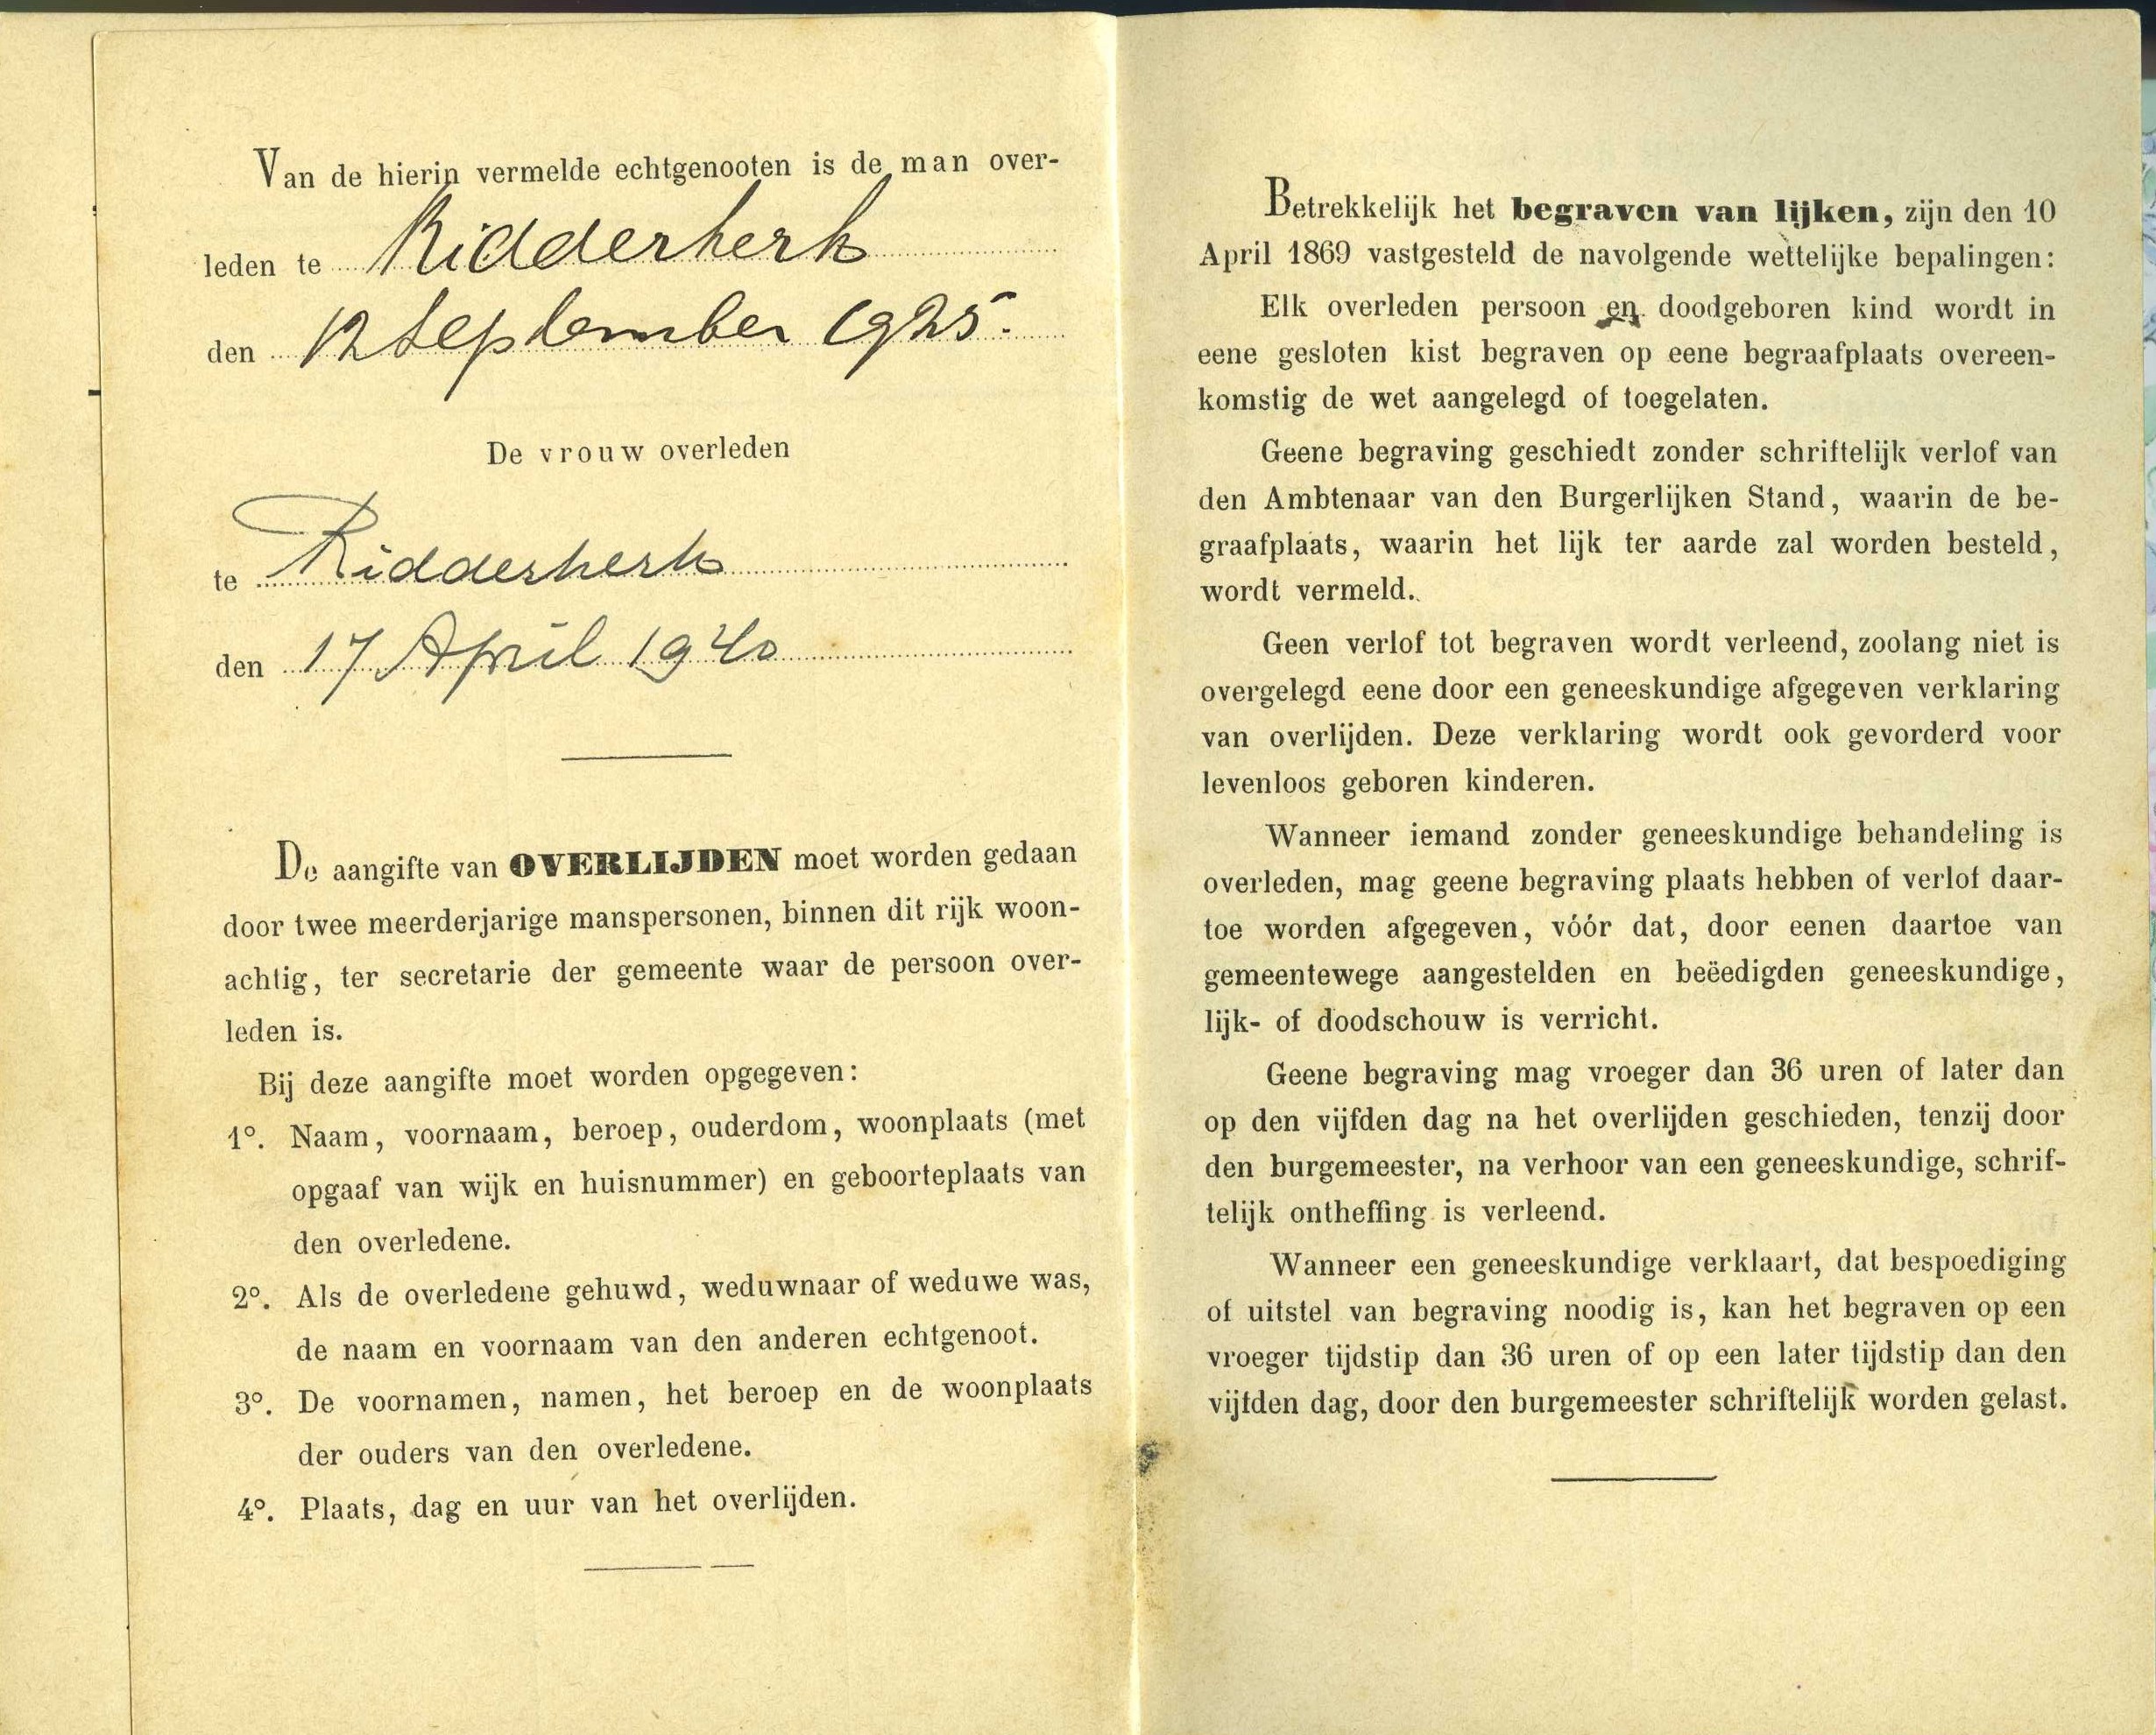 Van de hierin vermelde echtgenooten is de man over-
leden te Ridderkerk
den 12 September 1925.
De vrouw overleden
te Ridderkerk
den 17 April 1940
De aangifte van OVERLIJDEN moet worden gedaan
door twee meerderjarige manspersonen, binnen dit rijk woon-
achtig, ter secretarie der gemeente waar de persoon over-
leden is.
Bij deze aangifte moet worden opgegeven:
1°. Naam, voornaam, beroep, ouderdom, woonplaats (met
opgaaf van wijk en huisnummer) en geboorteplaats van
den overledene.
2°. Als de overledene gehuwd, weduwnaar of weduwe was,
de naam en voornaam van den anderen echtgenoot.
3°. De voornamen, namen, het beroep en de woonplaats
der ouders van den overledene.
4°. Plaats, dag en uur van het overlijden.
Betrekkelijk het begraven van lijken, zijn den 10
April 1869 vastgesteld de navolgende wettelijke bepalingen:
Elk overleden persoon en doodgeboren kind wordt in
eene gesloten kist begraven op eene begraafplaats overeen-
komstig de wet aangelegd of toegelaten.
Geene begraving geschiedt zonder schriftelijk verlof van
den Ambtenaar van den Burgerlijken Stand, waarin de be-
graafplaats, waarin het lijk ter aarde zal worden besteld,
wordt vermeld.
Geen verlof tot begraven wordt verleend, zoolang niet is
overgelegd eene door een geneeskundige afgegeven verklaring
van overlijden. Deze verklaring wordt ook gevorderd voor
levenloos geboren kinderen.
Wanneer iemand zonder geneeskundige behandeling is
overleden, mag geene begraving plaats hebben of verlof daar-
toe worden afgegeven, vóór dat, door eenen daartoe van
gemeentewege aangestelden en beëedigden geneeskundige,
lijk- of doodschouw is verricht.
Geene begraving mag vroeger dan 36 uren of later dan
op den vijfden dag na het overlijden geschieden, tenzij door
den burgemeester, na verhoor van een geneeskundige, schrif-
telijk ontheffing is verleend.
Wanneer een geneeskundige verklaart, dat bespoediging
of uitstel van begraving noodig is, kan het begraven op een
vroeger tijdstip dan 36 uren of op een later tijdstip dan den
vijfden dag, door den burgemeester schriftelijk worden gelast.